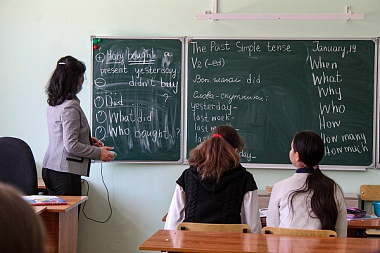 + Mary bought a
present yesterday.
- didn't buy
?
Did ?
What did
Who bought ?
The Past Simple tense January, 19
V2 (-ed)
Вспом. глагол did
Слова-спутники:
yesterday-
last week-
last
yesterday-
When
What
Why
Who
How
How many
How much